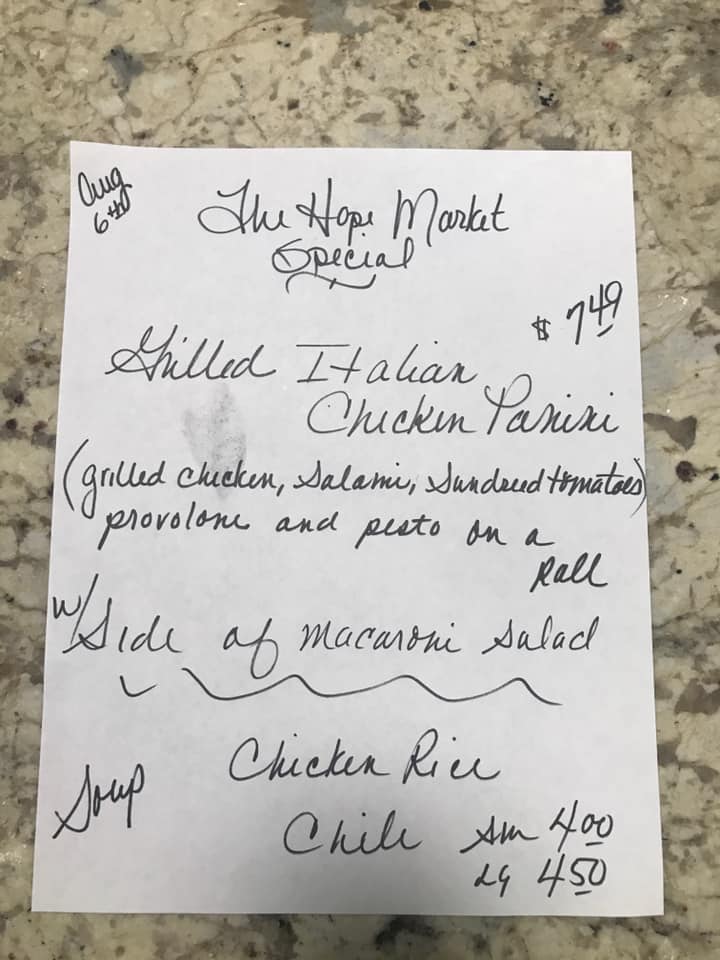 Aug
6th
The Hope Market
Special
$ 7.49
Grilled Italian
Chicken Panini
(grilled chicken, salami, sundried tomatoes)
provolone and pesto on a
Roll
w/ Side of macaroni salad
Soup
Chicken Rice
Chile sm 4.00
LG 4.50